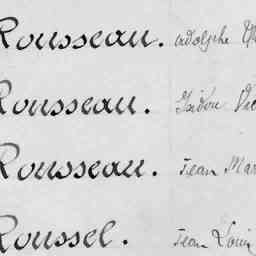 Rousseau. Adolphe
Rousseau. Isidore
Rousseau. Jean
Roussel. Jean Louis